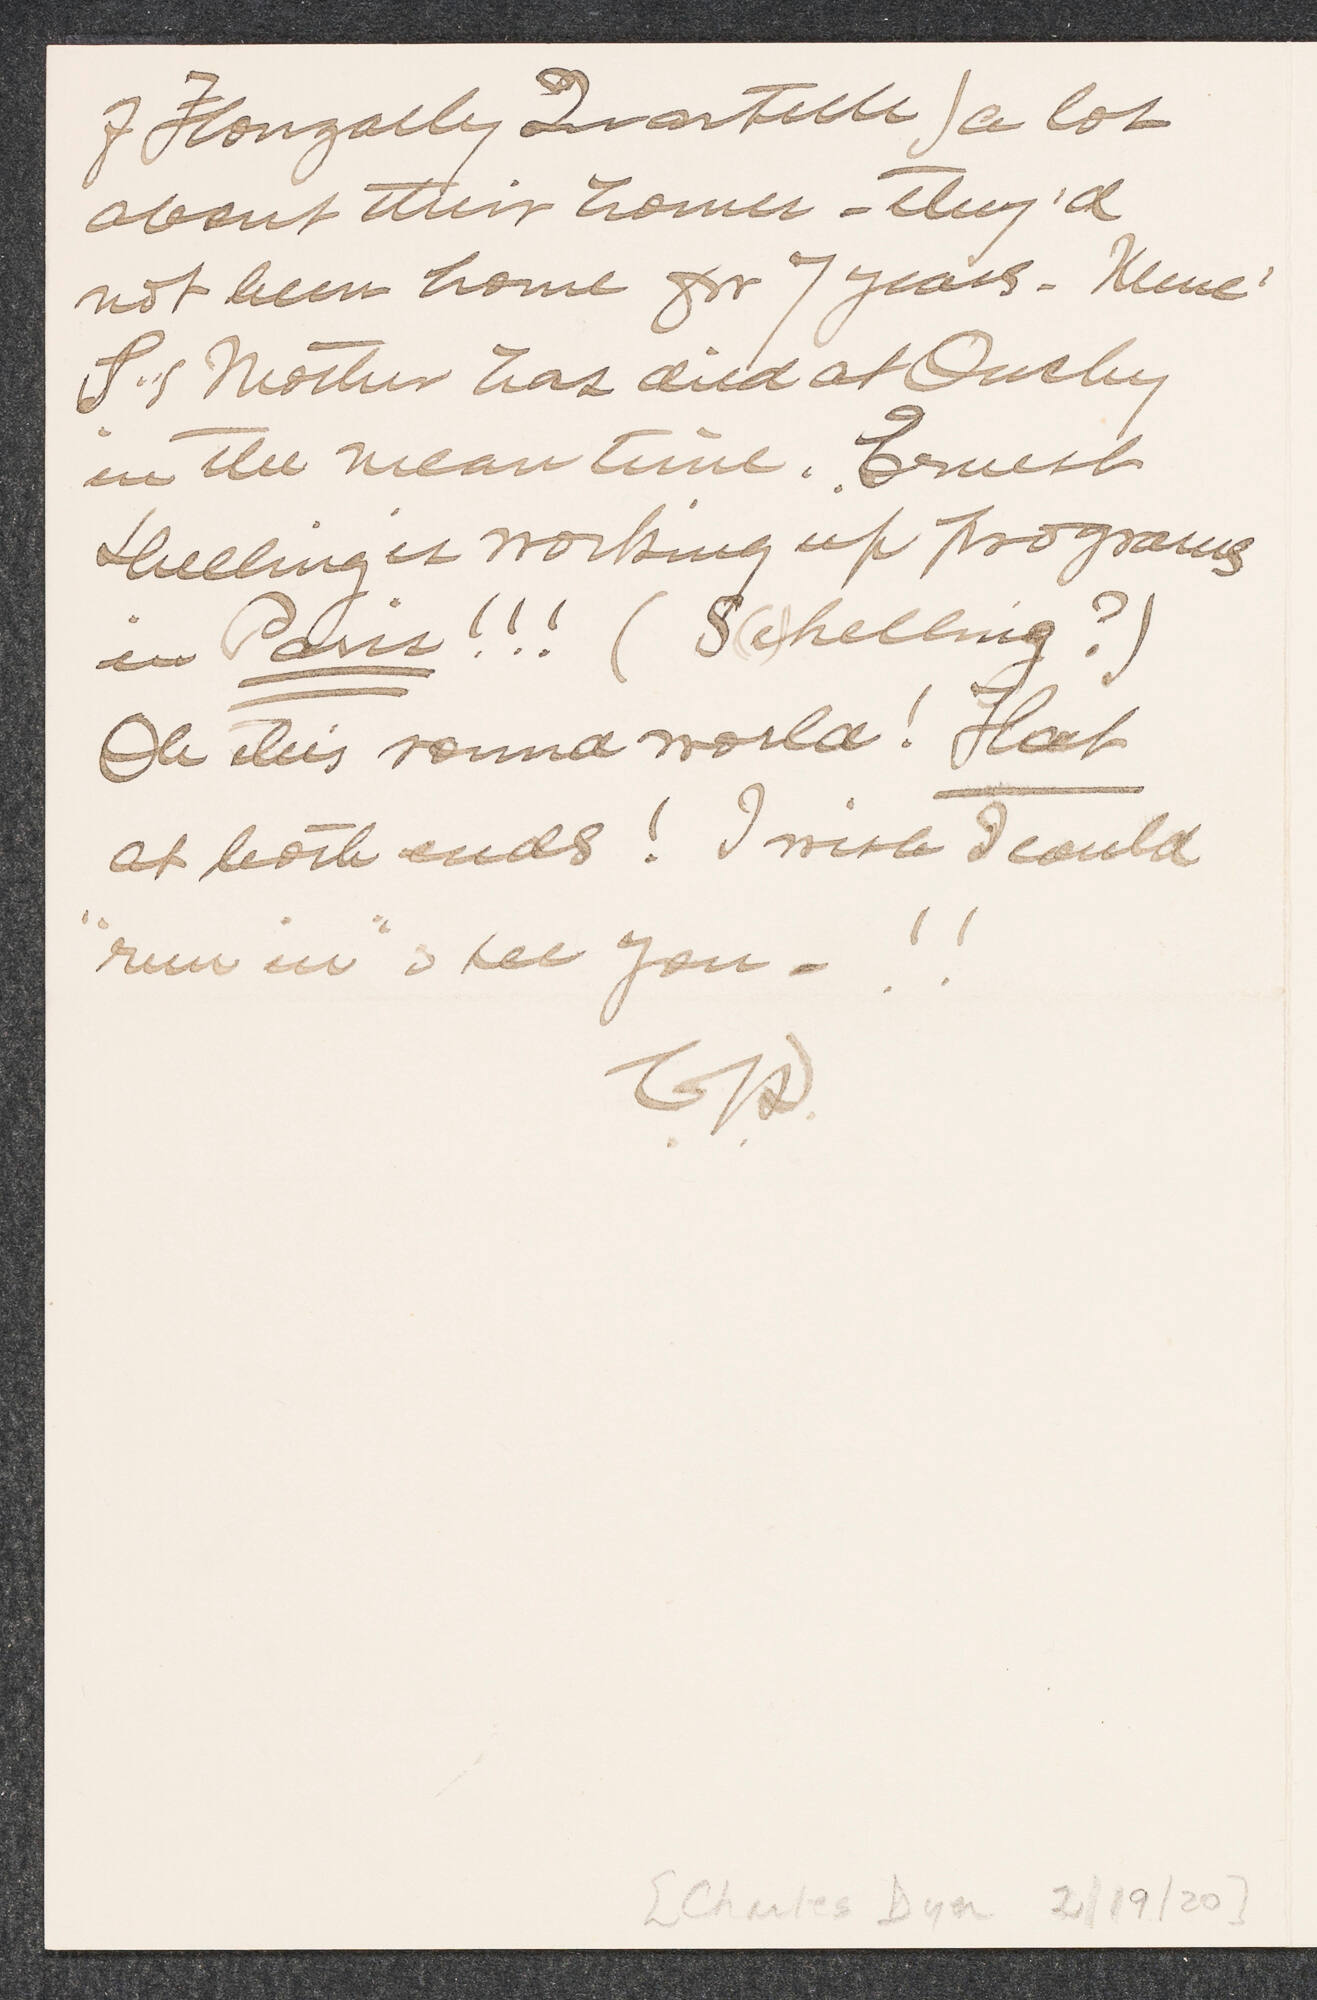 of Flonzalley Quartette) a lot
about their homes - they'd
not been home for 7 years -
S..'s Mother has died at Ouchy
in the mean time. Ernest
Shelling is working up programs
in Paris!!! (Schelling?)
Oh this round world! Flat
at both ends! I wish I could
"run in" & see you - !!
C.
[Charles Dyer 2/19/20]